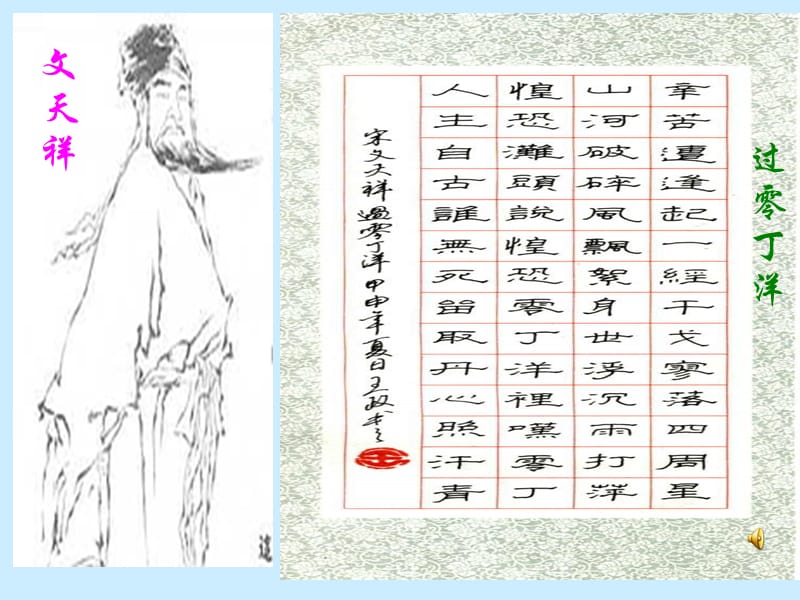 文天祥
过零丁洋
辛苦遭逢起一經干戈寥落四周星
山河破碎風飄絮身世浮沉雨打萍
惶恐灘頭說惶恐零丁洋裡嘆零丁
人生自古誰無死留取丹心照汗青
宋文天祥過零丁洋甲申年夏日王政書